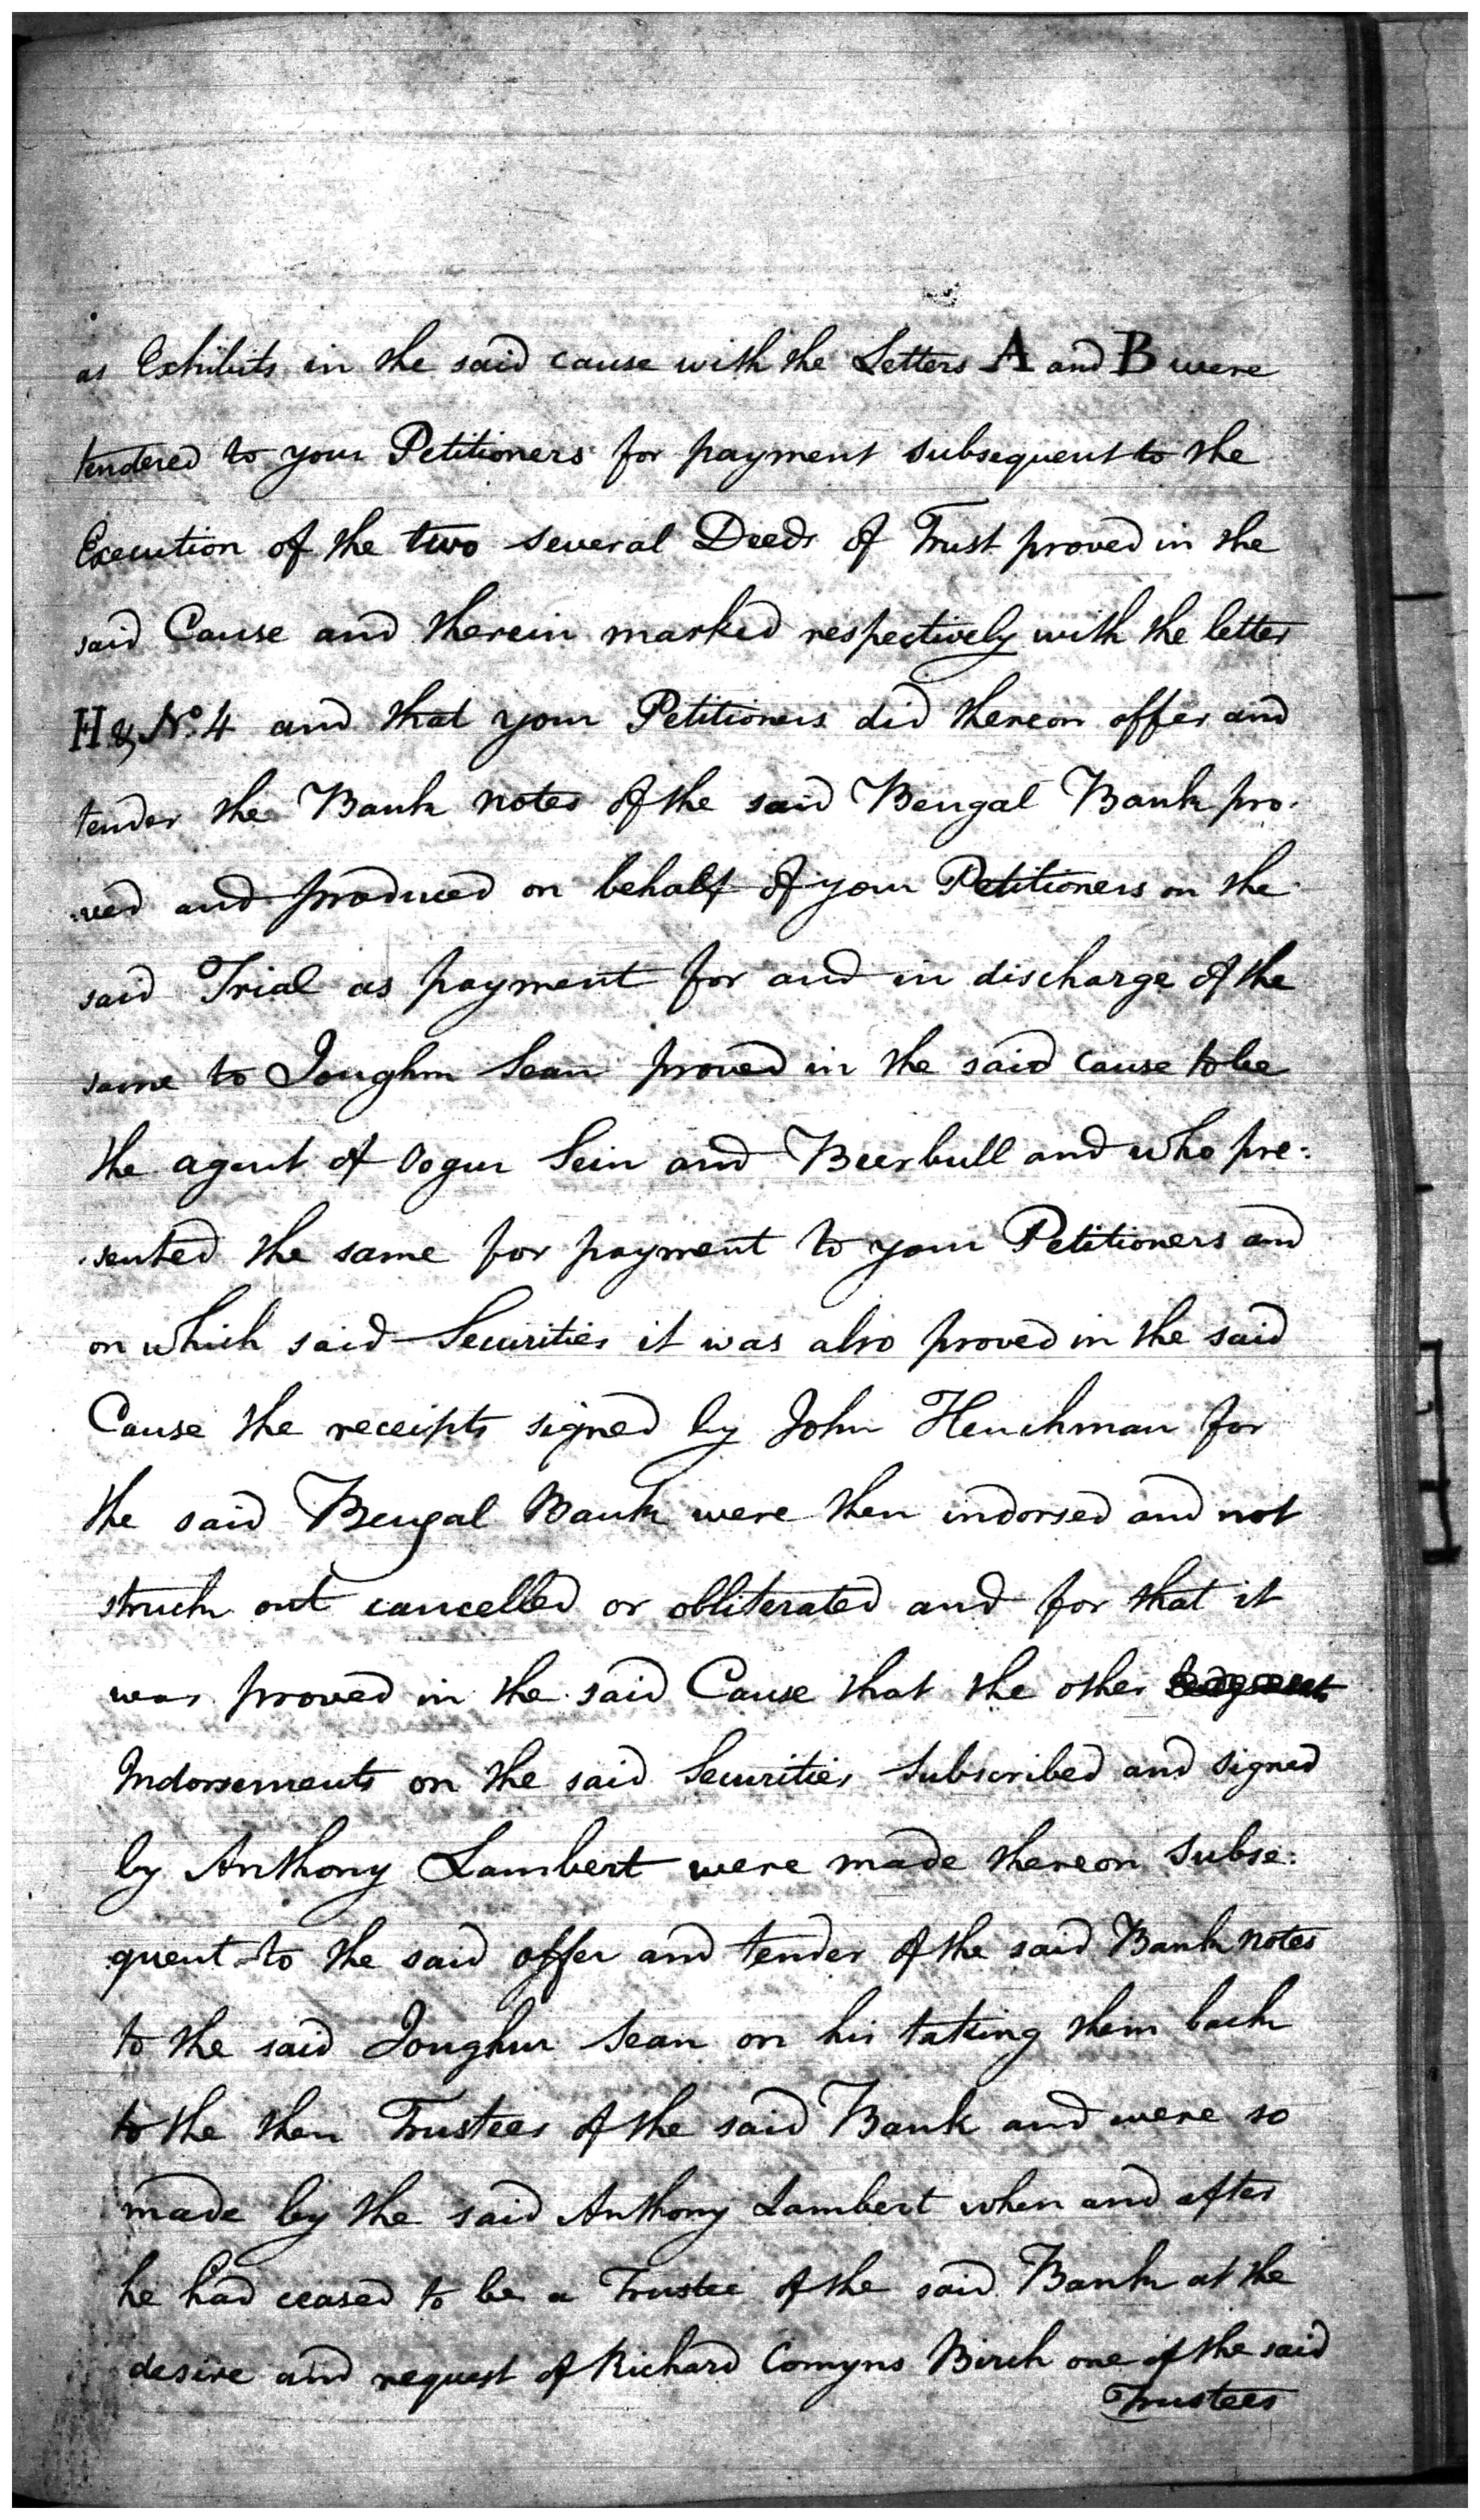 as Exhibits in the said cause with the Letters A and B were
tendered to your Petitioners for payment subsequent to the
Execution of the two several Deeds of Trust proved in the
said Cause and therein marked respectively with the letter
H & No. 4 and that your Petitioners did thereon offer and
tender the Bank notes of the said Bengal Bank pro-
:ved and produced on behalf of your Petitioners on the
said Trial as payment for and in discharge of the
same to Joughm Sean proved in the said cause to be
the agent of Oogur Sein and Beerbull and who pre:
:sented the same for payment to your Petitioners and
on which said Securities it was also proved in the said
Cause the receipts signed by John Henchman for
the said Bengal Bank were then indorsed and not
struck out cancelled or obliterated and for that it
was proved in the said Cause that the other
Indorsements on the said Securities subscribed and signed
by Anthony Lambert were made thereon subse:
:quent to the said offer and tender of the said Bank notes
to the said Joughur Sean on his taking them back
to the then Trustees of the said Bank and were so
made by the said Anthony Lambert when and after
he had ceased to be a Trustee of the said Bank at the
desire and request of Richard Comyns Birch one of the said
Trustees